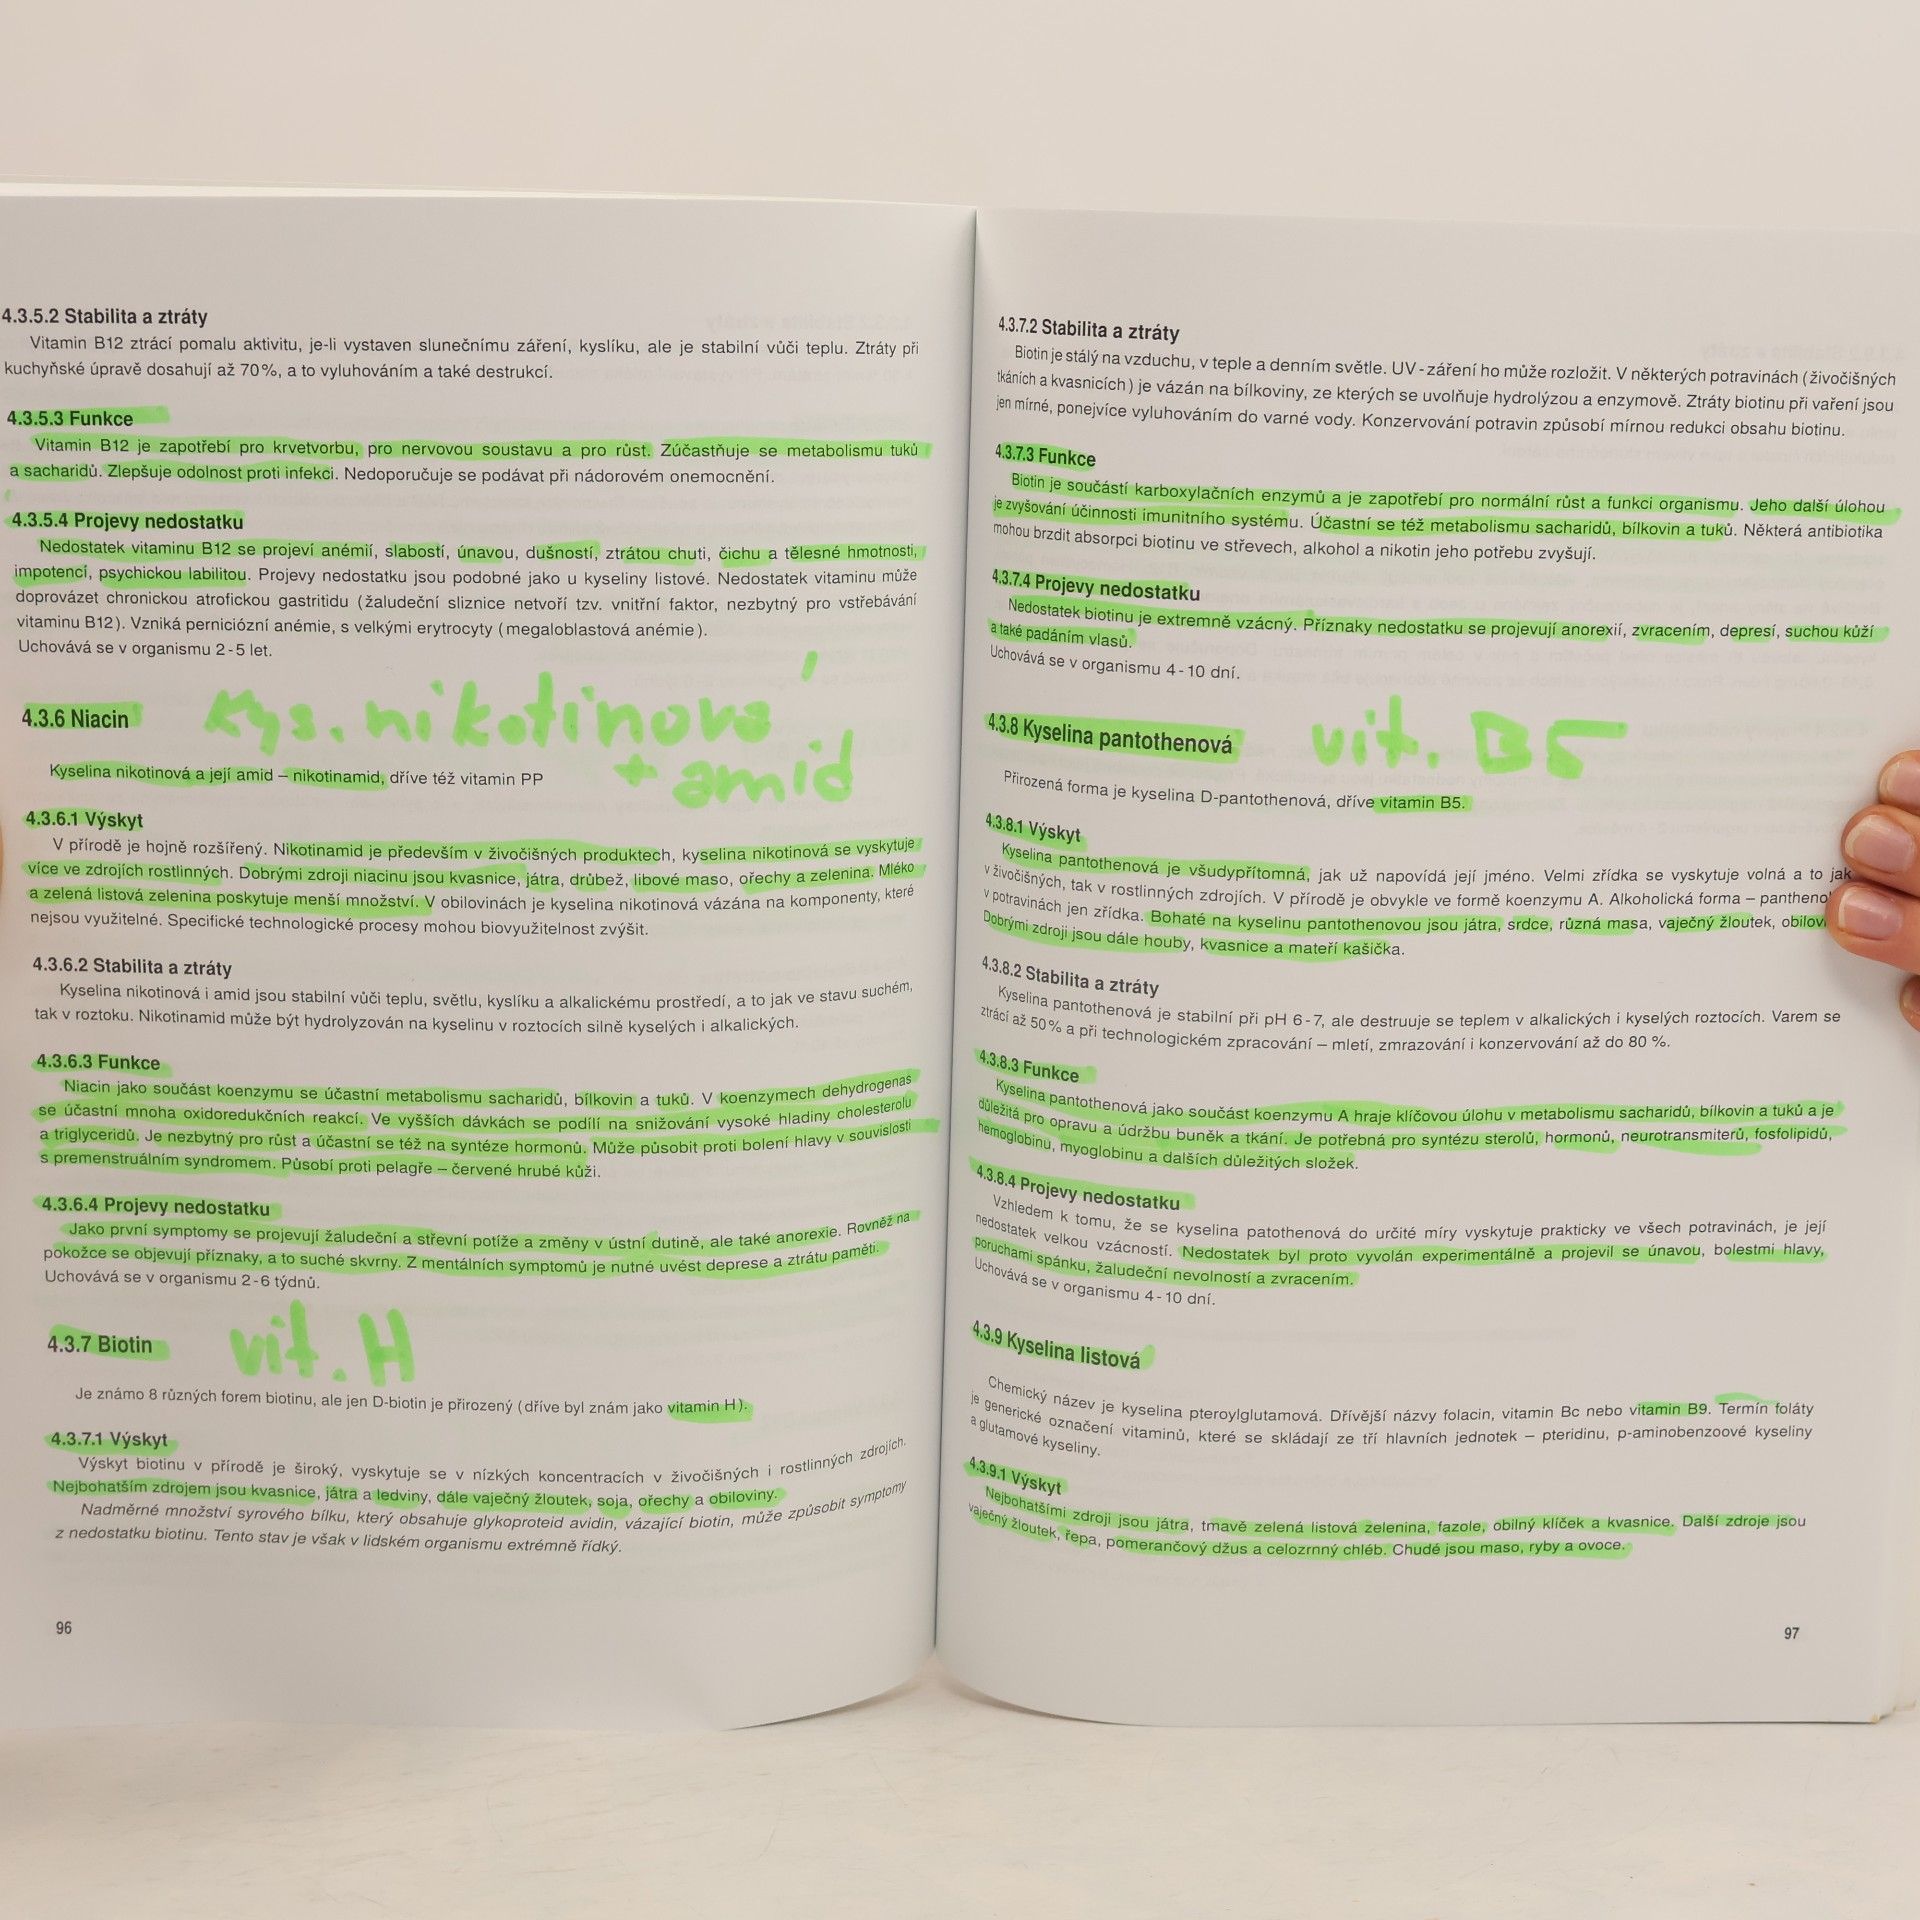 4.3.5.2 Stabilita a ztráty
Vitamin B12 ztrácí pomalu aktivitu, je-li vystaven slunečnímu záření, kyslíku, ale je stabilní vůči teplu. Ztráty při
kuchyňské úpravě dosahují až 70%, a to vyluhováním a také destrukcí.
4.3.5.3 Funkce
Vitamin B12 je zapotřebí pro krvetvorbu, pro nervovou soustavu a pro růst. Zúčastňuje se metabolismu tuků
a sacharidů. Zlepšuje odolnost proti infekci. Nedoporučuje se podávat při nádorovém onemocnění.
4.3.5.4 Projevy nedostatku
Nedostatek vitaminu B12 se projeví anémií, slabostí, únavou, dušností, ztrátou chuti, čichu a tělesné hmotnosti,
impotencí, psychickou labilitou. Projevy nedostatku jsou podobné jako u kyseliny listové. Nedostatek vitaminu může
doprovázet chronickou atrofickou gastritidu (žaludeční sliznice netvoří tzv. vnitřní faktor, nezbytný pro vstřebávání
vitaminu B12). Vzniká perniciózní anémie, s velkými erytrocyty (megaloblastová anémie).
Uchovává se v organismu 2-5 let.
4.3.6 Niacin
kys. nikotinová
+ amid
Kyselina nikotinová a její amid – nikotinamid, dříve též vitamin PP
4.3.6.1 Výskyt
V přírodě je hojně rozšířený. Nikotinamid je především v živočišných produktech, kyselina nikotinová se vyskytuje
více ve zdrojích rostlinných. Dobrými zdroji niacinu jsou kvasnice, játra, drůbež, libové maso, ořechy a zelenina. Mléko
a zelená listová zelenina poskytuje menší množství. V obilovinách je kyselina nikotinová vázána na komponenty, které
nejsou využitelné. Specifické technologické procesy mohou biovyužitelnost zvýšit.
4.3.6.2 Stabilita a ztráty
Kyselina nikotinová i amid jsou stabilní vůči teplu, světlu, kyslíku a alkalickému prostředí, a to jak ve stavu suchém,
tak v roztoku. Nikotinamid může být hydrolyzován na kyselinu v roztocích silně kyselých i alkalických.
4.3.6.3 Funkce
Niacin jako součást koenzymu se účastní metabolismu sacharidů, bílkovin a tuků. V koenzymech dehydrogenas
se účastní mnoha oxidoredukčních reakcí. Ve vyšších dávkách se podílí na snižování vysoké hladiny cholesterolu
a triglyceridů. Je nezbytný pro růst a účastní se též na syntéze hormonů. Může působit proti bolení hlavy v souvislosti
s premenstruálním syndromem. Působí proti pelagře – červené hrubé kůži.
4.3.6.4 Projevy nedostatku
Jako první symptomy se projevují žaludeční a střevní potíže a změny v ústní dutině, ale také anorexie. Rovněž na
pokožce se objevují příznaky, a to suché skvrny. Z mentálních symptomů je nutné uvést deprese a ztrátu paměti.
Uchovává se v organismu 2-6 týdnů.
4.3.7 Biotin
vit. H
Je známo 8 různých forem biotinu, ale jen D-biotin je přirozený (dříve byl znám jako vitamin H).
4.3.7.1 Výskyt
Výskyt biotinu v přírodě je široký, vyskytuje se v nízkých koncentracích v živočišných i rostlinných zdrojích.
Nejbohatším zdrojem jsou kvasnice, játra a ledviny, dále vaječný žloutek, soja, ořechy a obiloviny.
Nadměrné množství syrového bílku, který obsahuje glykoproteid avidin, vázající biotin, může způsobit symptomy
z nedostatku biotinu. Tento stav je však v lidském organismu extrémně řídký.
96
4.3.7.2 Stabilita a ztráty
Biotin je stálý na vzduchu, v teple a denním světle. UV-záření ho může rozložit. V některých potravinách (živočišných
tkáních a kvasnicích) je vázán na bílkoviny, ze kterých se uvolňuje hydrolýzou a enzymově. Ztráty biotinu při vaření jsou
jen mírné, ponejvíce vyluhováním do varné vody. Konzervování potravin způsobí mírnou redukci obsahu biotinu.
4.3.7.3 Funkce
Biotin je součástí karboxylačních enzymů a je zapotřebí pro normální růst a funkci organismu. Jeho další úlohou
je zvyšování účinnosti imunitního systému. Účastní se též metabolismu sacharidů, bílkovin a tuků. Některá antibiotika
mohou brzdit absorpci biotinu ve střevech, alkohol a nikotin jeho potřebu zvyšují.
4.3.7.4 Projevy nedostatku
Nedostatek biotinu je extremně vzácný. Příznaky nedostatku se projevují anorexií, zvracením, depresí, suchou kůží
a také padáním vlasů.
Uchovává se v organismu 4-10 dní.
4.3.8 Kyselina pantothenová
vit. B5
Přirozená forma je kyselina D-pantothenová, dříve vitamin B5.
4.3.8.1 Výskyt
Kyselina pantothenová je všudypřítomná, jak už napovídá její jméno. Velmi zřídka se vyskytuje volná a to jak
v živočišných, tak v rostlinných zdrojích. V přírodě je obvykle ve formě koenzymu A. Alkoholická forma – panthenol
v potravinách jen zřídka. Bohaté na kyselinu pantothenovou jsou játra, srdce, různá masa, vaječný žloutek,
Dobrými zdroji jsou dále houby, kvasnice a mateří kašička.
4.3.8.2 Stabilita a ztráty
Kyselina pantothenová je stabilní při pH 6-7, ale destruuje se teplem v alkalických i kyselých roztocích. Varem se
ztrácí až 50% a při technologickém zpracování – mletí, zmrazování i konzervování až do 80 %.
4.3.8.3 Funkce
Kyselina pantothenová jako součást koenzymu A hraje klíčovou úlohu v metabolismu sacharidů, bílkovin a tuků a je
důležitá pro opravu a údržbu buněk a tkání. Je potřebná pro syntézu sterolů, hormonů, neurotransmiterů, fosfolipidů,
hemoglobinu, myoglobinu a dalších důležitých složek.
4.3.8.4 Projevy nedostatku
Vzhledem k tomu, že se kyselina patothenová do určité míry vyskytuje prakticky ve všech potravinách, je její
nedostatek velkou vzácností. Nedostatek byl proto vyvolán experimentálně a projevil se únavou, bolestmi hlavy,
poruchami spánku, žaludeční nevolností a zvracením.
Uchovává se v organismu 4-10 dní.
4.3.9 Kyselina listová
Chemický název je kyselina pteroylglutamová. Dřívější názvy folacin, vitamin Bc nebo vitamin B9. Termín foláty
je generické označení vitaminů, které se skládají ze tří hlavních jednotek – pteridinu, p-aminobenzoové kyseliny
a glutamové kyseliny.
4.3.9.1 Výskyt
Nejbohatšími zdroji jsou játra, tmavě zelená listová zelenina, fazole, obilný klíček a kvasnice. Další zdroje jsou
vaječný žloutek, řepa, pomerančový džus a celozrnný chléb. Chudé jsou maso, ryby a ovoce.
97